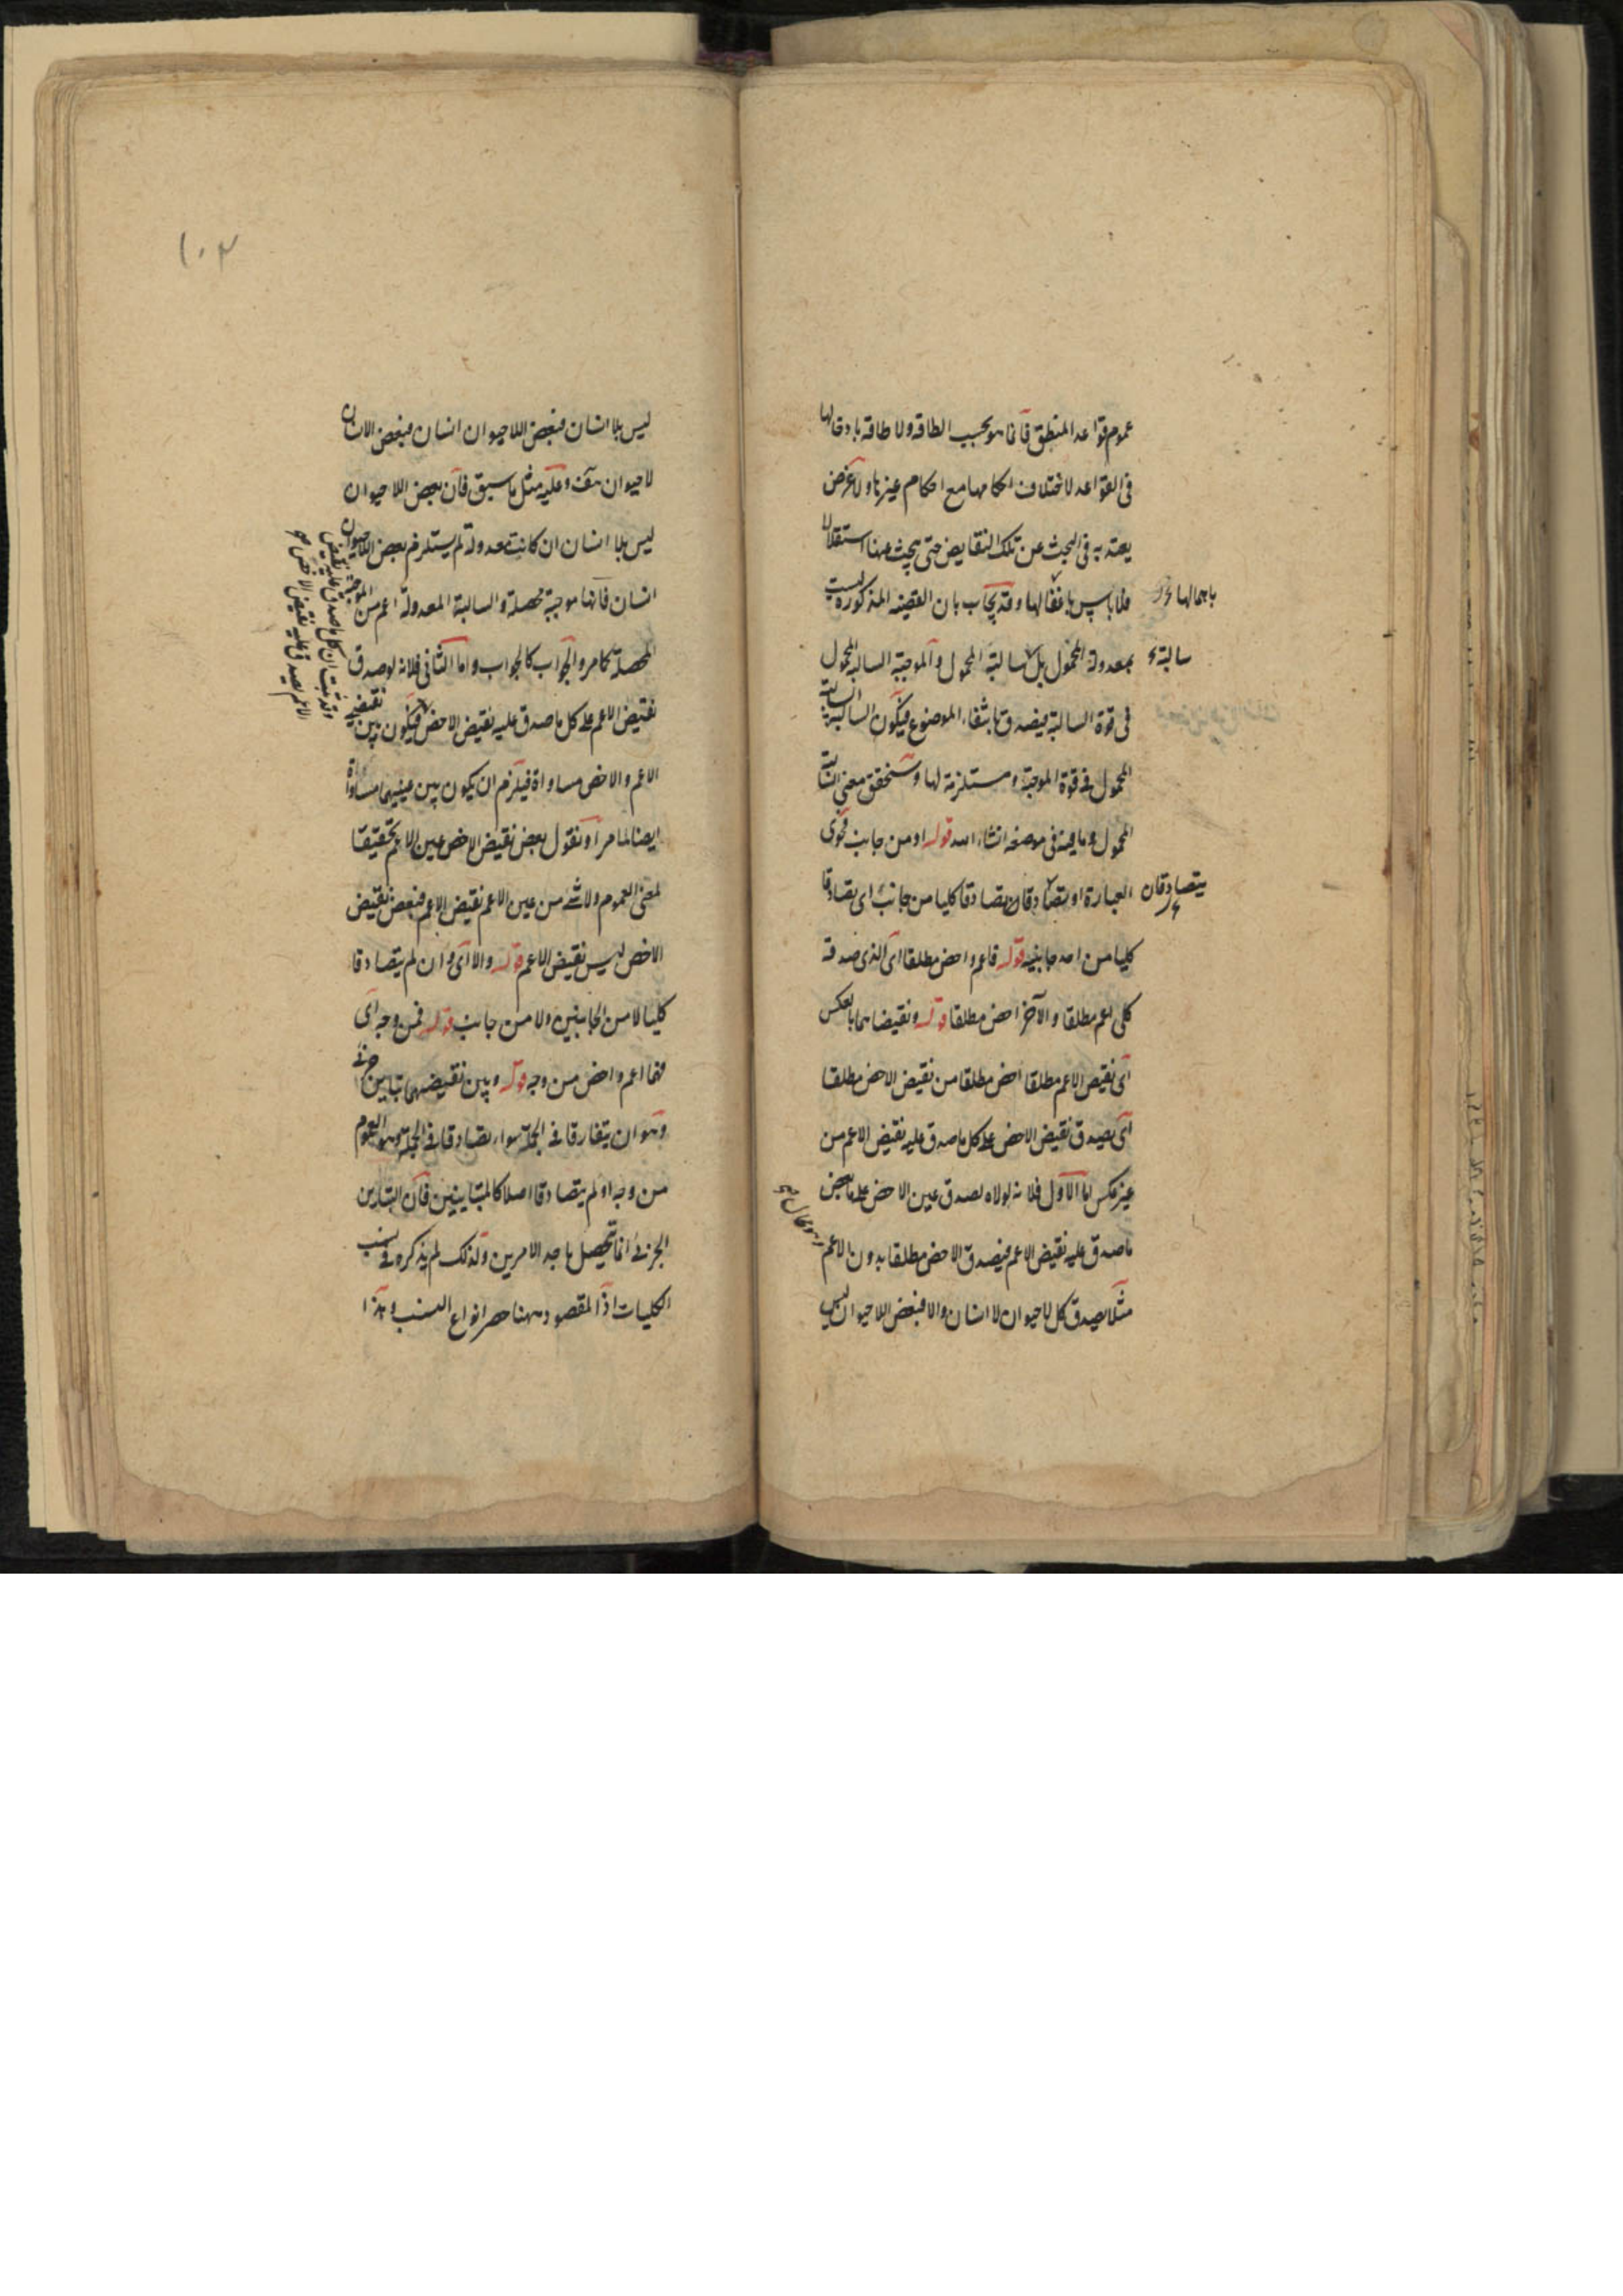 عموم قواعد المنطق فانما هو بحسب الطاقه ولا طاقه بادخالها
فى القواعد لاختلاف احكامها مع احكام غيرها ولا غرض
يعتد به فى البحث عن تلك النقايض حتى يبحث عنها استقلالا
فلا باس باغفالها وقد يجاب بان القضيه المذكوره ليست
باهمالها
بمعدولة المحمول بل سالبة المحمول والموجبة السالبه المحمول
سالبة
فى قوة السالبة فيصدق بانتفاء الموضوع فيكون السالبة السالبة
المحمول فى قوة الموجبة ومستلزمة لها وستحقق معنى السالبة
المحمول وما فيه فى موضعه انشاء الله قوله او من جانب فحوى
العبارة او يتصادقان تصادقا كليا من جانب اى تصادقا
يتصادقان
كليا من احد جانبيه قوله فاعم واخص مطلقا اى الذى صدقه
كلى اعم مطلقا والآخر اخص مطلقا قوله ونقيضاهما بالعكس
اى نقيض الاعم مطلقا اخص مطلقا من نقيض الاخص مطلقا
اى يصدق نقيض الاخص على كل ما صدق عليه نقيض الاعم من
غير عكس اما الاول فلانه لولاه لصدق عين الاخص على بعض
ما صدق عليه نقيض الاعم فيصدق الاخص مطلقا بدون الاعم
وهو محال
مثلا يصدق كل لا حيوان لا انسان والا فبعض اللاحيوان ليس
١٠٣
ليس بلا انسان فبعض اللاحيوان انسان فبعض الانسان
لا حيوان هف وعليه مثل ما سبق فان بعض اللاحيوان
ليس بلا انسان ان كانت معدولة لم يستلزم بعض اللاحيوان
انسان فانها موجبة محصلة والسالبة المعدولة اعم من الموجبة
المحصلة كما مر والجواب كالجواب واما الثانى فلانه لو صدق
نقيض الاعم على كل ما صدق عليه نقيض الاخص فيكون بين نقيضى
وقد ثبت ان كل ما صدق عليه نقيض
الاعم يصدق عليه نقيض الاخص
الاعم والاخص مساواة فيلزم ان يكون بين عينيهما مساواة
ايضا لما مر او نقول بعض نقيض الاخص عين الاعم تحقيقا
لمعنى العموم ولا شئ من عين الاعم نقيض الاعم فبعض نقيض
الاخص ليس نقيض الاعم قوله والا اى وان لم يتصادقا
كليا لا من الجانبين ولا من جانب قوله فمن وجه اى
فهما اعم واخص من وجه قوله وبين نقيضيهما تباين جزئى
وهو ان يتفارقا فى الجملة سواء تصادقا فى الجملة وهو العموم
من وجه او لم يتصادقا اصلا كالمتباينين فان التباين
الجزئى انما تحصل باحد الامرين ولذلك لم يذكره فى نسب
الكليات اذ المقصود ههنا حصر انواع النسب وهذا